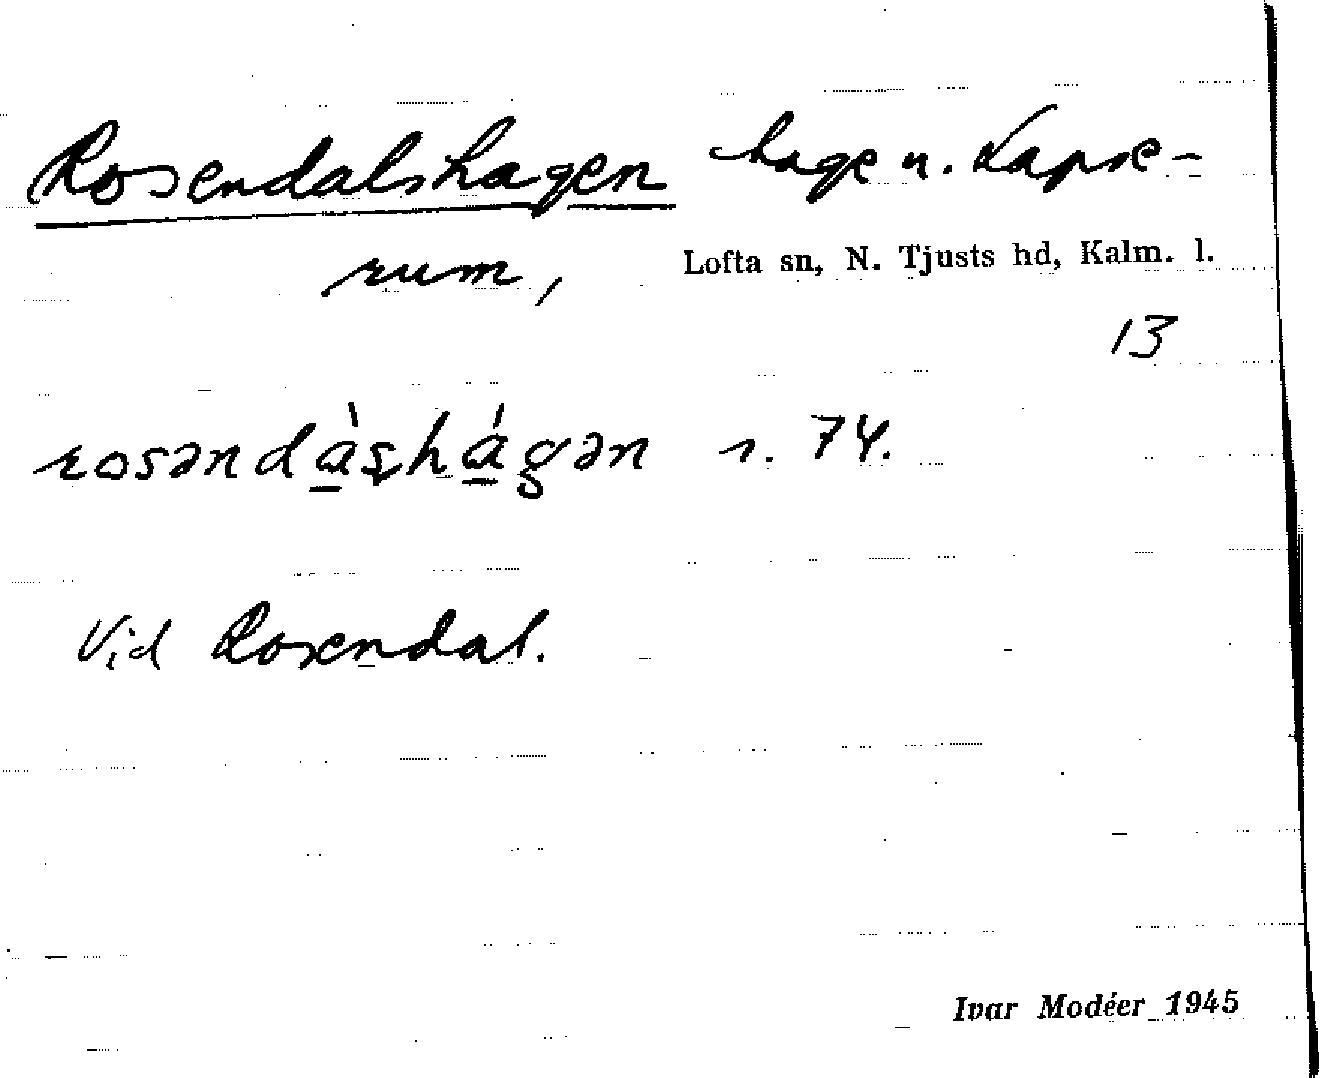 Rosendalshagen hage u. Lapse-
rum, Lofta sn, N. Tjusts hd, Kalm. l.
13
rosəndàʂhágən s. 74.
Vid Rosendal.
Ivar Modéer 1945